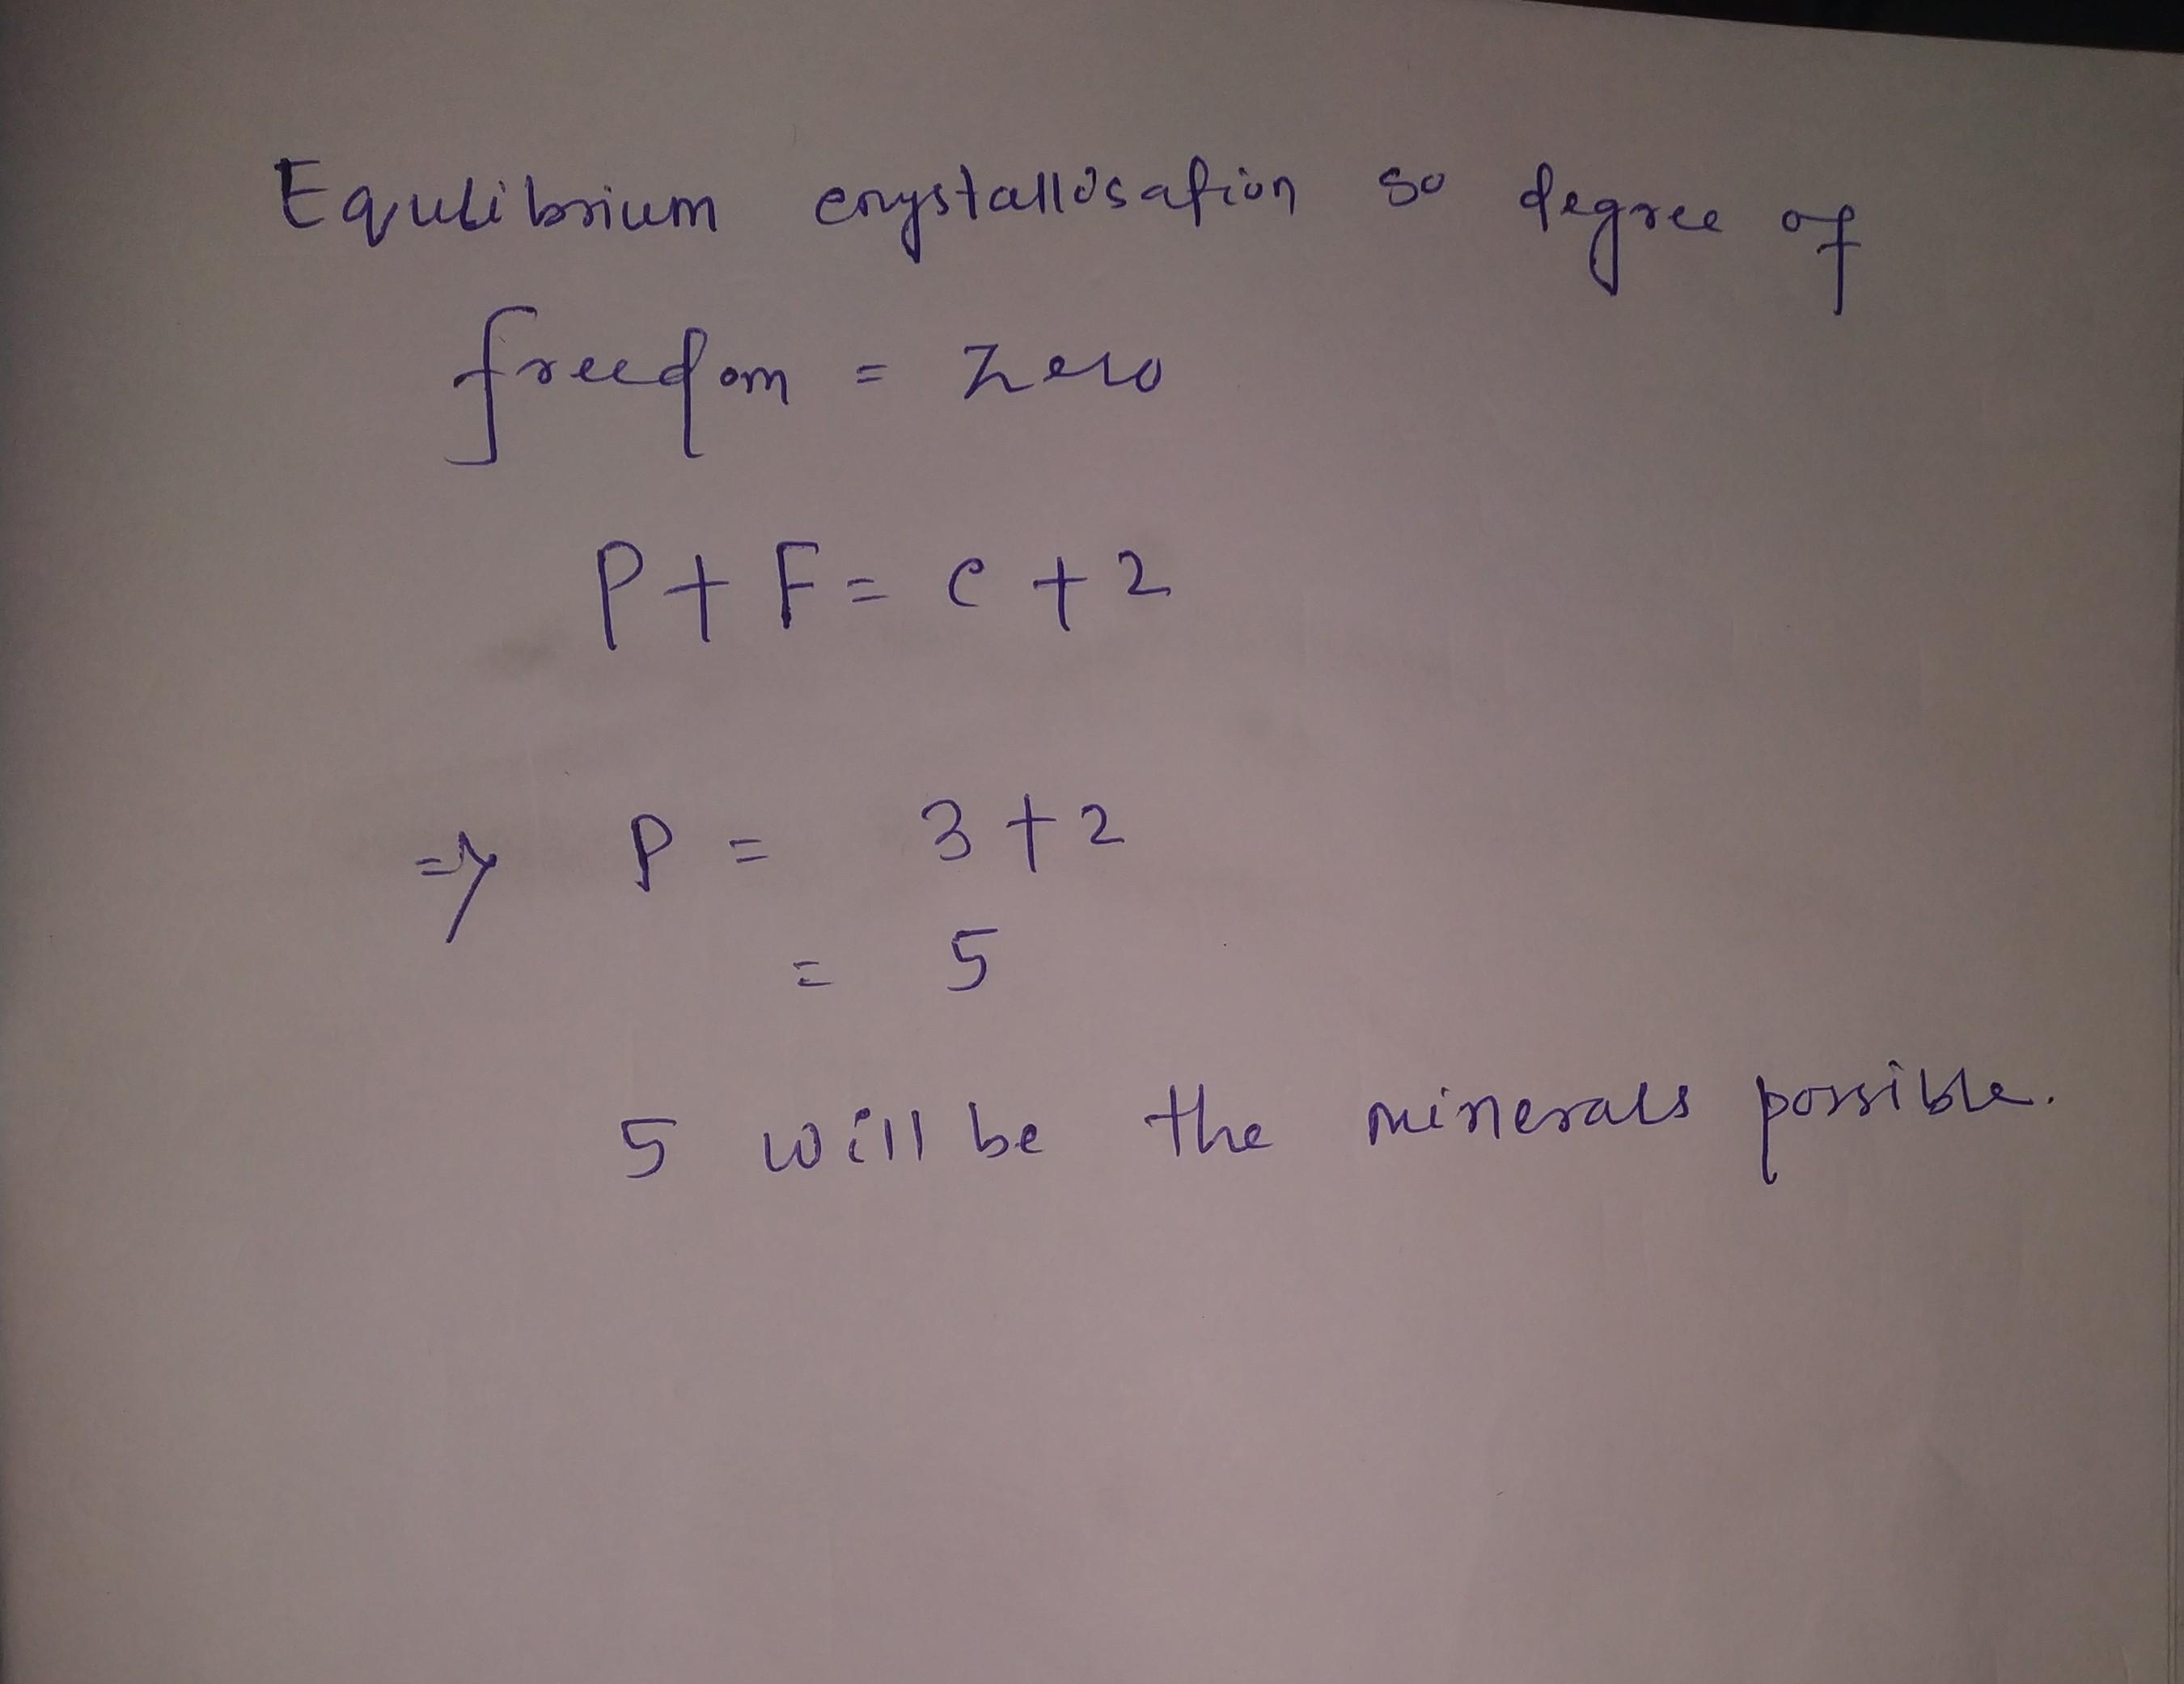 Equlibrium crystallisation so degree of
freedom = zero
P + F = c + 2
⇒ P = 3 + 2
= 5
5 will be the minerals possible.